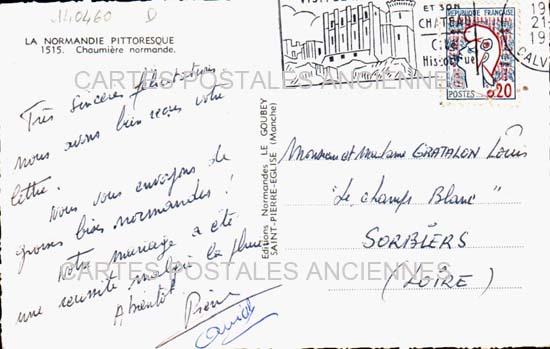 140460 D
LA NORMANDIE PITTORESQUE
1515. Chaumière normande.
Très sincères félicitations
nous avons bien reçu votre
lettre.
Nous vous envoyons de
gros bises normandes !
Notre mariage a été
une réussite malgré la pluie
A bientôt
Pierre
David
Editions Normandes LE GOUBEY
SAINT-PIERRE-EGLISE (Manche)
ET SON
CHATEAU
Cité
Historique
REPUBLIQUE FRANÇAISE
POSTES 0,20
19
21
19
CALV
Monsieur et Madame GRATALON Louis
"Le champs Blanc"
SORBIERS
(LOIRE)
CARTES POSTALES ANCIENNES
CARTES POSTALES ANCIENNES